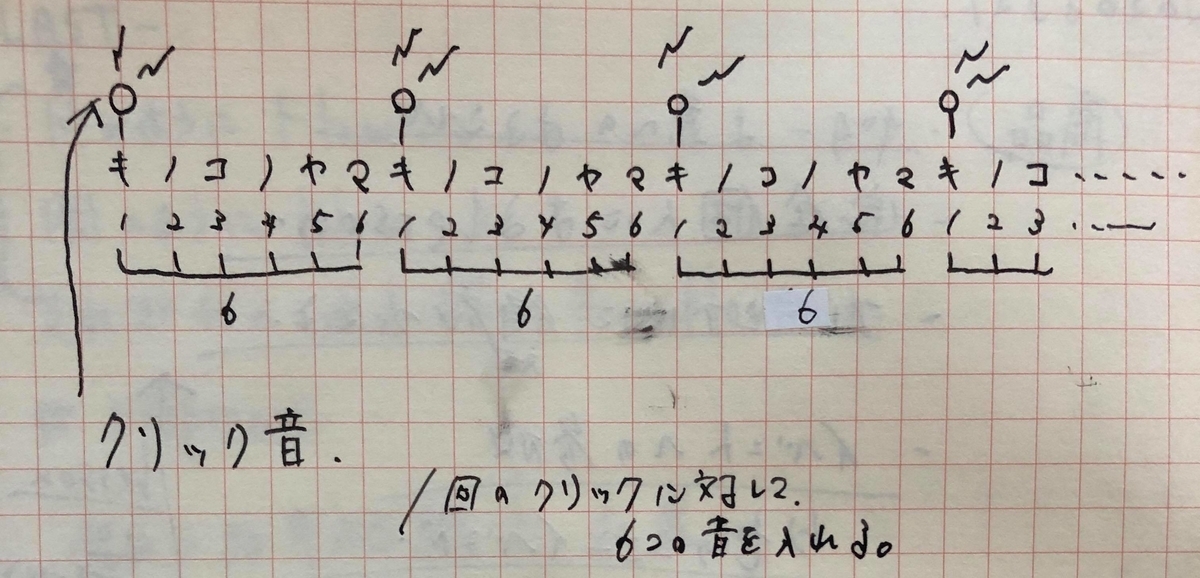 キノコノヤマキノコノヤマキノコノヤマキノコ・・・・・
1 2 3 4 5 6 1 2 3 4 5 6 1 2 3 4 5 6 1 2 3 ・・—
6 6 6
クリック音.
1回のクリックに対して.
6つの音を入れる。